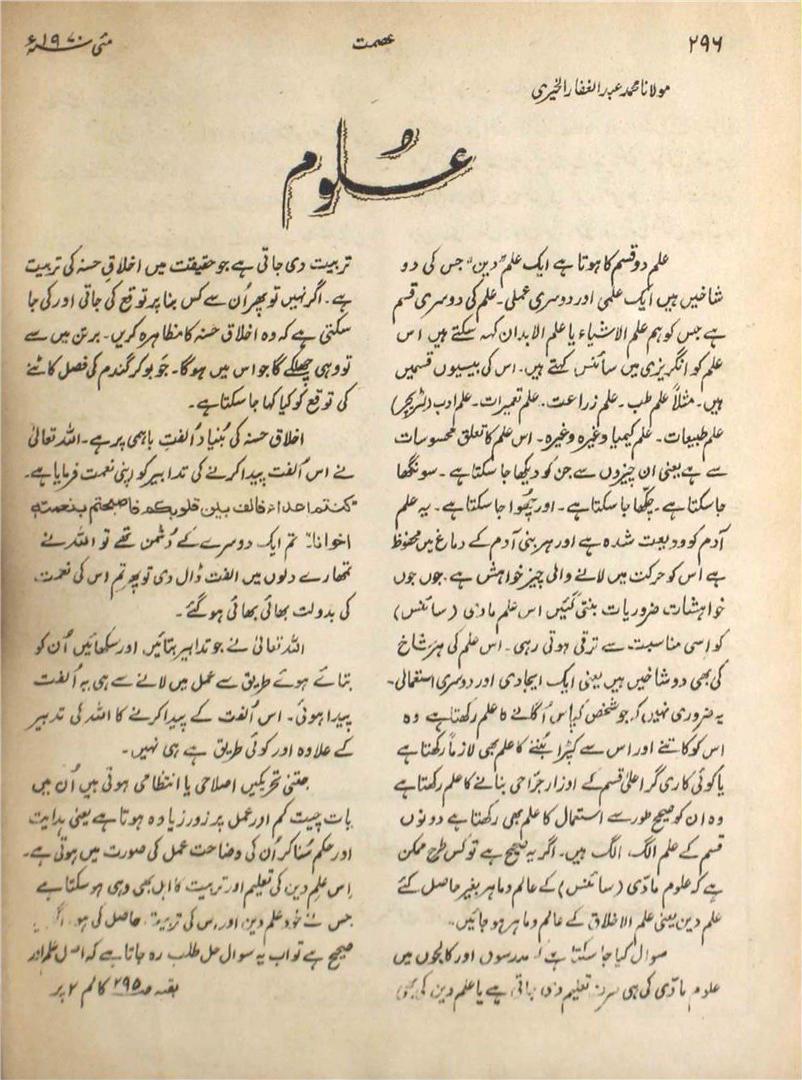 ۲۹۶
عصمت
مئی سنہ ۱۹۷۰ء
مولانا محمد عبدالغفار الخیری
عُلوم
علم دو قسم کا ہوتا ہے ایک علم "دین" جس کی دو
شاخیں ہیں ایک علمی اور دوسری عملی۔ علم کی دوسری قسم
ہے جس کو ہم علم الاشیاء یا علم الابدان کہہ سکتے ہیں اس
علم کو انگریزی میں سائنس کہتے ہیں۔ اس کی بیسیوں قسمیں
ہیں۔ مثلاً علم طب۔ علم زراعت۔ علم تعمیرات۔ علم ادب (لٹریچر)
علم طبیعات۔ علم کیمیا وغیرہ وغیرہ۔ اس علم کا تعلق محسوسات
سے ہے یعنی ان چیزوں سے جن کو دیکھا جا سکتا ہے۔ سونگھا
جا سکتا ہے۔ چکھا جا سکتا ہے۔ اور چھُوا جا سکتا ہے۔ یہ علم
آدم کو ودیعت شدہ ہے اور ہر بنی آدم کے دماغ میں محفوظ
ہے اس کو حرکت میں لانے والی چیز خواہش ہے۔ جوں جوں
خواہشات ضروریات بنتی گئیں اس علم مادّی (سائنس)
کو اسی مناسبت سے ترقی ہوتی رہی۔ اس علم کی ہر شاخ
کی بھی دو شاخیں ہیں یعنی ایک ایجادی اور دوسری استعمالی۔
یہ ضروری نہیں کہ جو شخص کپاس اُگانے کا علم رکھتا ہے وہ
اس کو کاتنے اور اس سے کپڑا بُننے کا علم بھی لازماً رکھتا ہے
یا کوئی کاری گر اعلیٰ قسم کے اوزار جرّاحی بنانے کا علم رکھتا ہے
وہ ان کو صحیح طور سے استعمال کا علم بھی رکھتا ہے دونوں
قسم کے علم الگ، الگ ہیں۔ اگر یہ صحیح ہے تو کس طرح ممکن
ہے کہ علوم مادّی (سائنس) کے عالم و ماہر بغیر حاصل کئے
علم دین یعنی علم الاخلاق کے عالم و ماہر ہو جائیں۔
سوال کیا جا سکتا ہے کہ مدرسوں اور کالجوں میں
علوم مادّی کی ہی تعلیم دی جاتی ہے یا علم دین کی بھی
تربیت دی جاتی ہے جو حقیقت میں اخلاقِ حسنہ کی تربیت
ہے۔ اگر نہیں تو پھر اُن سے کس بنا پر توقع کی جاتی اور کی جا
سکتی ہے کہ وہ اخلاق حسنہ کا مظاہرہ کریں۔ برتن میں سے
تو وہی چھلکے گا جو اس میں ہوگا۔ جَو بو کر گندم کی فصل کاٹنے
کی توقع کو کیا کہا جا سکتا ہے۔
اخلاق حسنہ کی بُنیاد اُلفتِ باہمی پر ہے۔ اللہ تعالیٰ
نے اس اُلفت پیدا کرنے کی تدابیر کو اپنی نعمت فرمایا ہے۔
"کنتم اعداء فالف بین قلوبکم فاصبحتم بنعمتہ
اخوانا" تم ایک دوسرے کے دُشمن تھے تو اللہ نے
تمھارے دلوں میں الفت ڈال دی تو پھر تم اس کی نعمت
کی بدولت بھائی بھائی ہو گئے۔
اللہ تعالیٰ نے جو تدابیر بتائیں اور سکھائیں اُن کو
بتائے ہوئے طریق سے عمل میں لانے سے ہی یہ اُلفت
پیدا ہوئی۔ اس اُلفت کے پیدا کرنے کا اللہ کی تدبیر
کے علاوہ اور کوئی طریق ہے ہی نہیں۔
جتنی تحریکیں اصلاحی یا انتظامی ہوتی ہیں اُن میں
بات چیت کم اور عمل پر زور زیادہ ہوتا ہے یعنی ہدایت
اور حکم سُنا کر اُن کی وضاحت عمل کی صورت میں ہوتی ہے۔
اِس علمِ دین کی تعلیم اور تربیت کا اہل بھی وہی ہو سکتا ہے
جس نے خود علم دین اور اس کی تربیت حاصل کی ہو۔ اگر یہ
صحیح ہے تو اب یہ سوال حل طلب رہ جاتا ہے کہ اصل علم اور
بقیہ صـ ۲۹۵ کالم ۲ پر